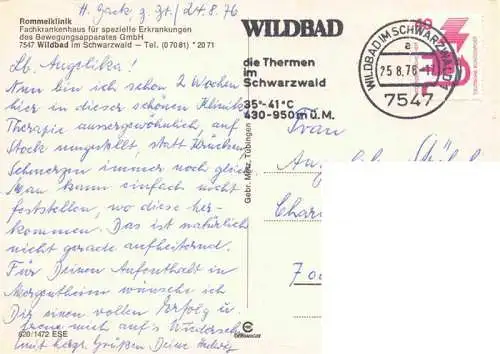 H. Gack, z. Zt. / 24. 8. 76
Rommelklinik
Fachkrankenhaus für spezielle Erkrankungen
des Bewegungsapparates GmbH
7547 Wildbad im Schwarzwald – Tel. (0 70 81) * 20 71
Lb. Angelika!
Nun bin ich schon 2 Wochen
hier in dieser schönen Klinik
Therapie aussergewöhnlich, auf
Stock umgestellt, statt Krücken
Schmerzen immer noch gleich
Man kann einfach nicht
feststellen, wo diese her-
kommen. Das ist natürlich
nicht gerade aufheiternd.
Für Deinen Aufenthalt in
Mergentheim wünsche ich
Dir einen vollen Erfolg u.
freue mich auf's Wiederseh
mit herzl. Grüßen Deine Hedwig
620/1472 ESE
Gebr. Metz, Tübingen
WILDBAD
die Thermen
im
Schwarzwald
35°-41°C
430-950 m ü. M.
WILDBAD IM SCHWARZWALD
a
25.8.76
7547
Frau